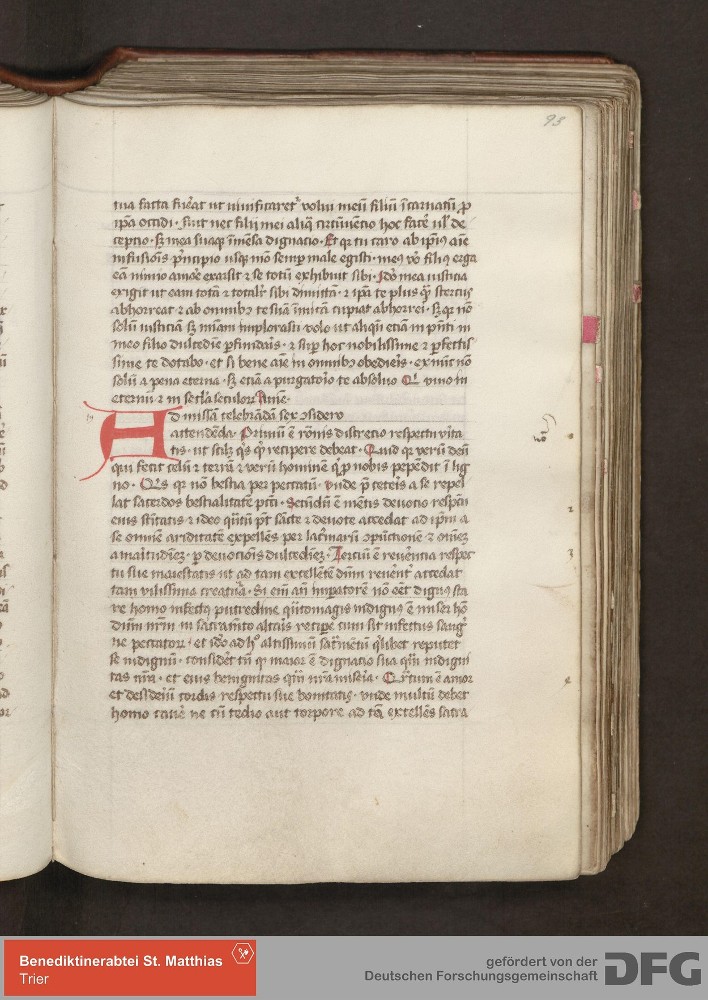 93
tua facta fuerat ut viuificaret' volui meū filiū īcarnatū p
ip̄a occidi · fuit nec filii mei aliq̄ circūuēcio hoc facē ul' de
ceptio · sȝ mea suaqȝ īmēsa dignacio · Et qr tu caro ab ip̄iꝰ aīe
infusiōis p̄ncipio usqȝ mō semp male egisti · meꝰ v̊o filiꝰ erga
eā nimio amoē exarsit ⁊ se totū exhibuit sibi · Iđo mea iusticia
exigit ut eam totā ⁊ totalit' sibi dimittā · ⁊ ip̄a te plus q̄ stercus
abhorreat ⁊ ab omnibꝰ te suā īmicā cupiat abhorrei · sȝ qr nō
solū iusticiā sȝ mīam implorasti volo ut aliquū etiā in p̄nti in
meo filio dulcedīe pfundaris · ⁊ sup hoc nobilissime ⁊ pfectis
sime te dotabo · et si bene aīe in omnibꝰ obedieīs · ex nūc nō
solū a pena eterna · sȝ etiā a purgatorio te absoluo Q' viuo in
eternū ⁊ in secla seculorꝝ Amē ·
Ad missā celebrādā sex ɔsidero
attendēda · Primū ē rōnis discretio respectu vita
tis · ut scilȝ q̄s q̄ recipere debeat · Quid qr verū deū
qui fecit celū ⁊ terrā ⁊ verū hominē q̇ p nobis pepēdit ī lig
no · Q̇s qr nō bestia per peccatū · vnde p̄ ceteīs a se repel
lat sacerdos bestialitatē pcti · Secūdū ē mētis deuotio respcū
eius sc̄itatis ⁊ ideo q̄ntū pt' sācte ⁊ deuote accedat ad ip̄m a
se omnē ariditatē expellēs per lac'marū ɔpūctionē ⁊ omēȝ
amaritudīeȝ · p deuotiōis dulcedīeȝ · Terciū ē reuēntia respec
tu sue maiestatis ut ad tam excellētē dn̄m reuēnt' accedat
tam vilissima creatura · Si em̄ an̄ impatorē nō eēt dignꝰ sta
re homo infectꝰ putredine q̄ntomagis indignꝰ ē miser hō
dn̄m nr̄m in sacramēto altaīs recipe cum sit infectus sang'
ne peccatorꝝ · et iđo ad h° altissimū sac'mētū q̇libet reputet
se indignū · consideēt tn̄ q̄ maior ē dignatio sua q̄m indigni
tas nr̄a · et eius benignitas q̄m nr̄a miseīa · Quartum ē amor
et desideiū cordis respectu sue bonitatis · vnde multū debet
homo cauē ne cū tedio aut torpore ad tā excellēs sacra
2
3
Benediktinerabtei St. Matthias
Trier
gefördert von der
Deutschen Forschungsgemeinschaft
DFG